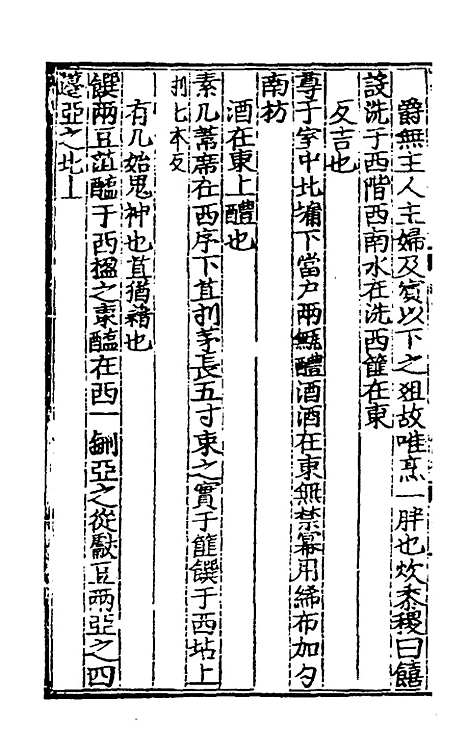 爵無主人主婦及賓以下之俎故唯烹一胖也炊黍稷曰饎
設洗于西階西南水在洗西篚在東
反吉也
尊于室中北墉下當户兩甒醴酒酒在東無禁冪用絺布加勺
南枋
酒在東上醴也
素几葦席在西序下苴刌茅長五寸束之實于篚饌于西坫上
刌七本反
有几始鬼神也苴猶藉也
饌兩豆菹醢于西楹之東醢在西一鉶亞之從獻豆兩亞之四
籩亞之北上